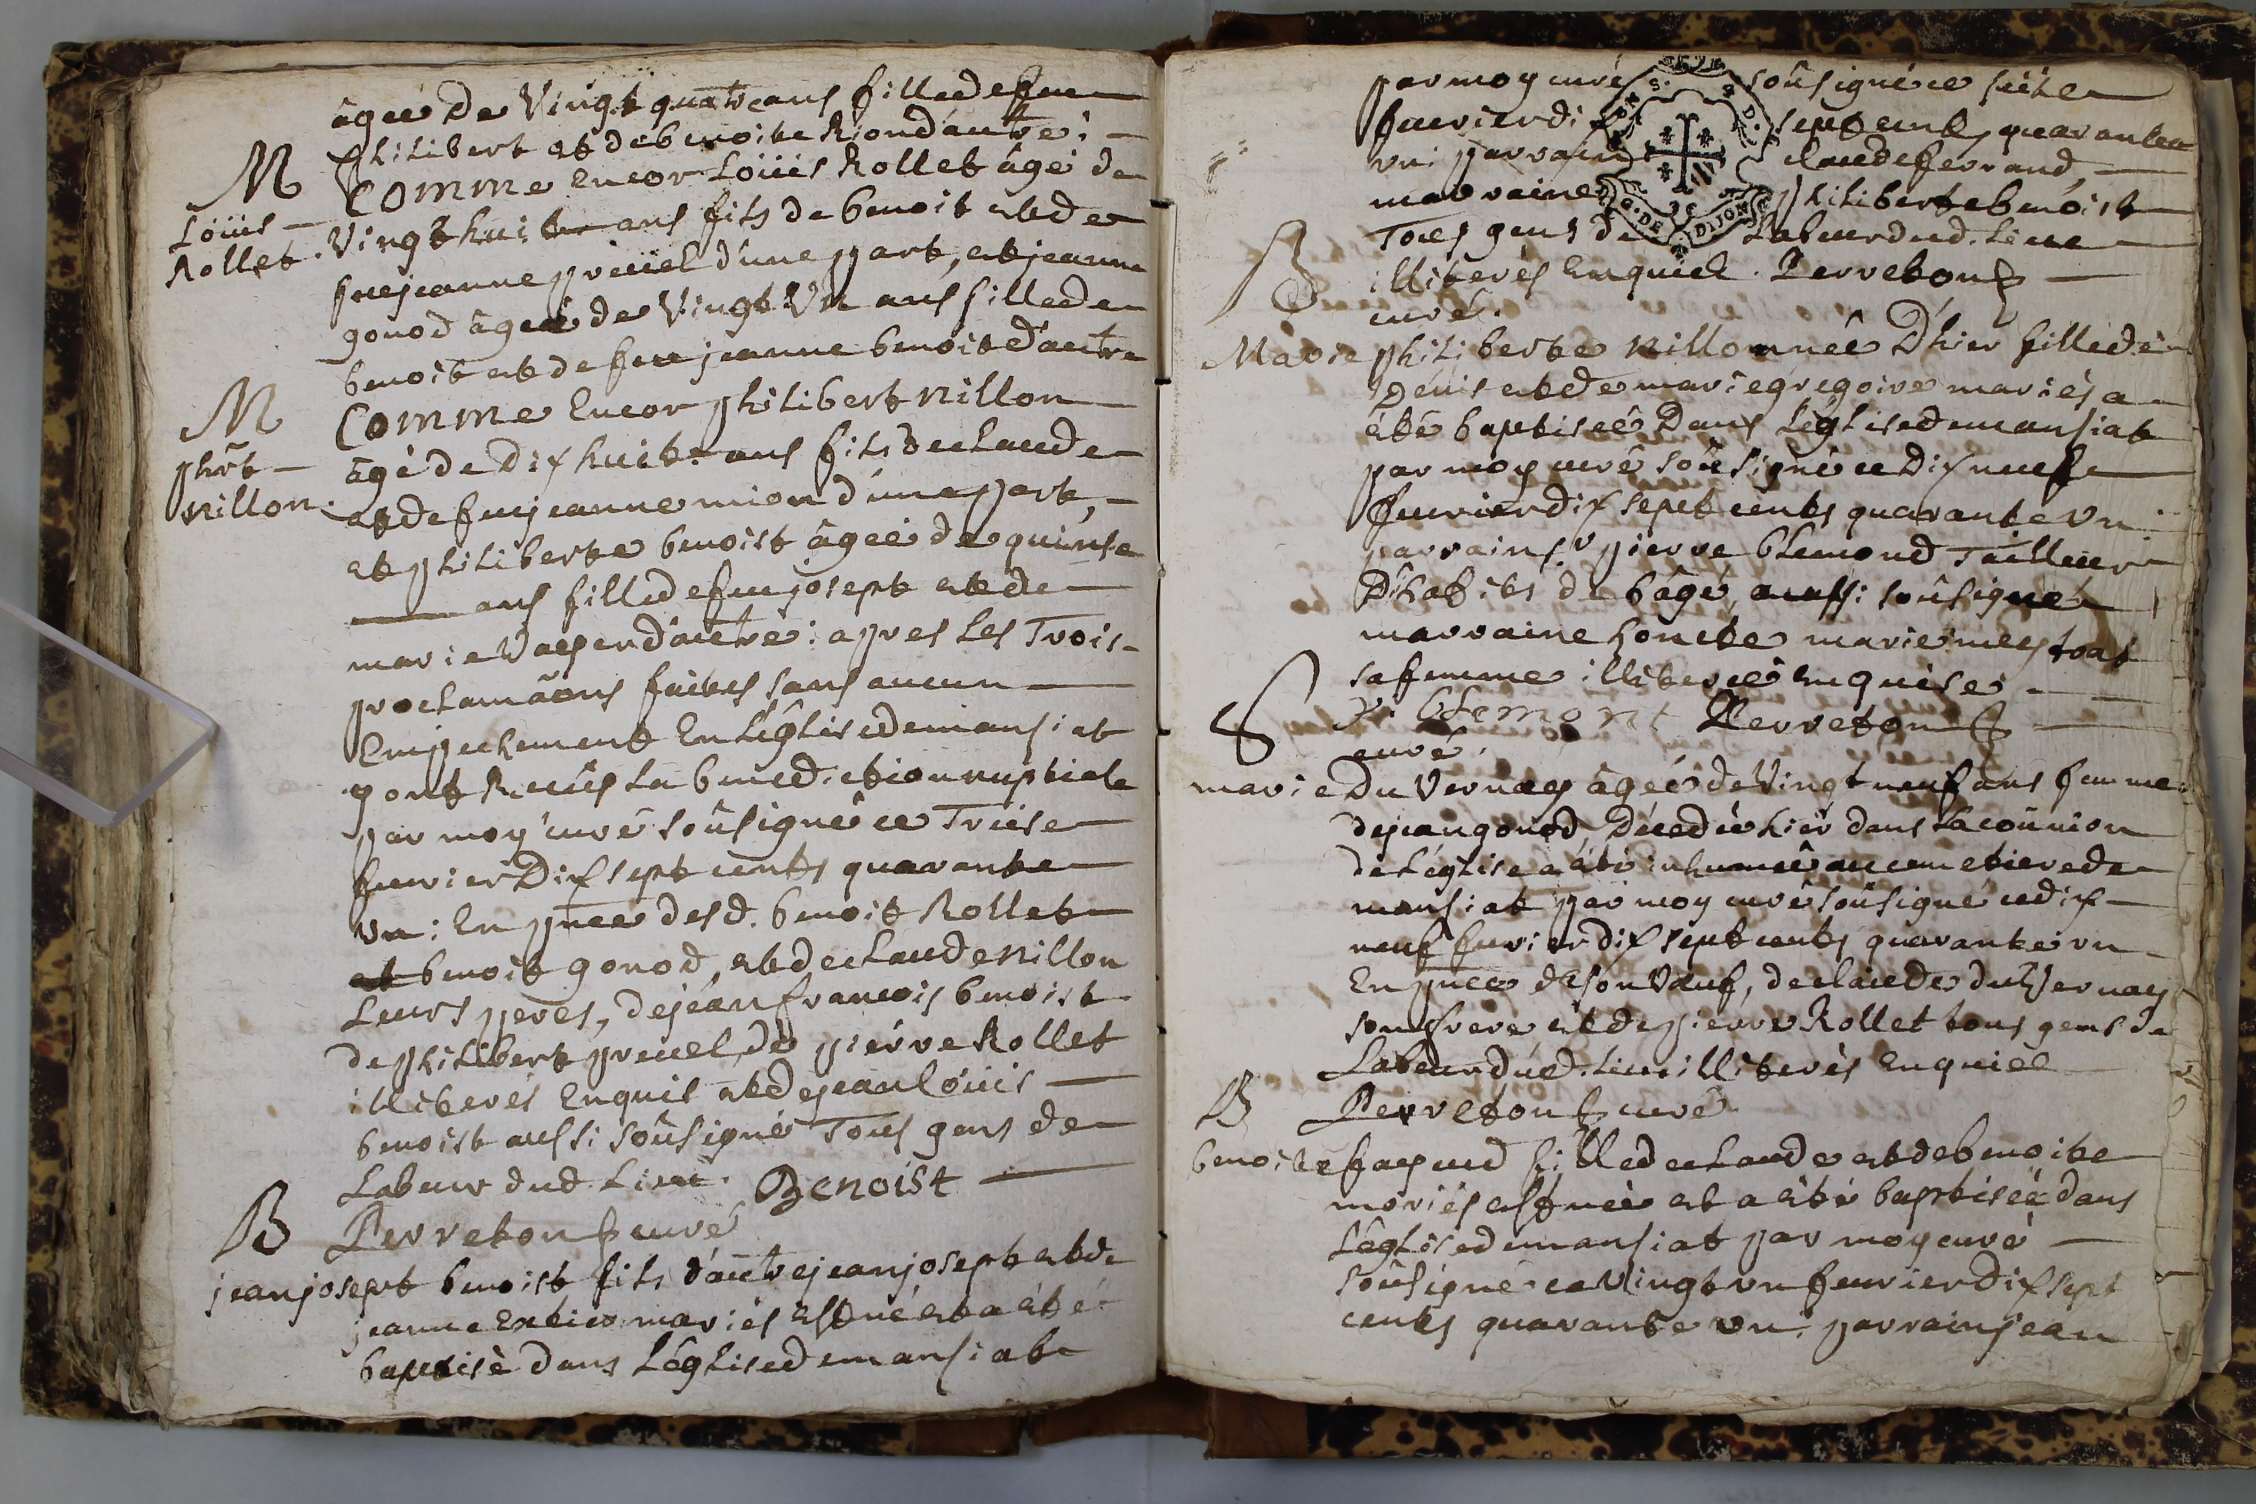 âgeé De Vingt quatre ans fille de feu
philibert et de benoite Riond'autre :
M
Comme encor Loüis Rollet âgé de
Loüis
Rollet.
Vingt huit ans fils de benoit et de
feue jeanne preüel d'une part, et jeanne
gonod âgeé de Vingt Vn ans fille de
benoit et de feu jeanne benoit d'autre
M
Comme encor philibert nillon
phîbt
nillon.
âgé de Dix huit ans fils de claude
et de feu jeanne mion d'une part,
et philiberte benoist âgeé de quinse
ans fille de feu josept et de
marie d'autre : apres les Trois
proclamãons faites sans aucun
Empechement En l'églis de mansiat
ont Recüs la benediction nuptiale
par moy curé soûsigné ce Treise
fevrier Dix sept cents quarante
vn : En pñce desd. benoit Rollet
et benoit gonod, et de claude nillon
Leurs peres, de jean francois benoist
de philibert preuel, de pierre Rollet
illiterés Enquis et de jean loüis
benoist aussi soûsigné Tous gens de
Labeur dud. Lieu. Benoist
B
Perreton curé
jean josept benoist fils d'autre jean josept et de
jeanne mariés est né et a eté
baptisé dans l'église de mansiat
par moy curé soûsigné ce
fevrier di sept cents quarante
vn : parrain claude ferrand,
marraine philiberte benoist
Tous gens de Labeur dud. Lieu
B
illiterés Enquis. Perreton
curé.
Marie philiberte nillon née D'hier fille de
Denis et de marie gregoire mariés a
été baptiseé Dans l'église de mansiat
par moy curé soûsigné ce Dix neuf
fevrier dix sept cents quarante vn
parrain sr pierre blemond Tailleur
D'habits de bâgé, aussi soûsigné
marraine honete marie
sa femme illitereé enquise
S
p. blemont Perreton
curé.
marie Du Vernay âgeé de Vingt neuf ans femme
de jean gonod Décedée hier dans La coũnion
de L'église a été inhumeé au cemetiere de
mansiat par moy curé soûsigné ce dix
neuf fevrier dix sept cents quarante vn
En pñce de son Veuf, de claude du Vernay
son frere et de pierre Rollet tous gens de
Labeur dud. Lieu illiterés Enquis
B
Perreton curé
benoite fille de claude et de benoite
mariés est neé et a été baptiseé dans
L'église de mansiat par moy curé
soûsigné ce Vingt vn fevrier Dix sept
cents quarante vn. parrain jean